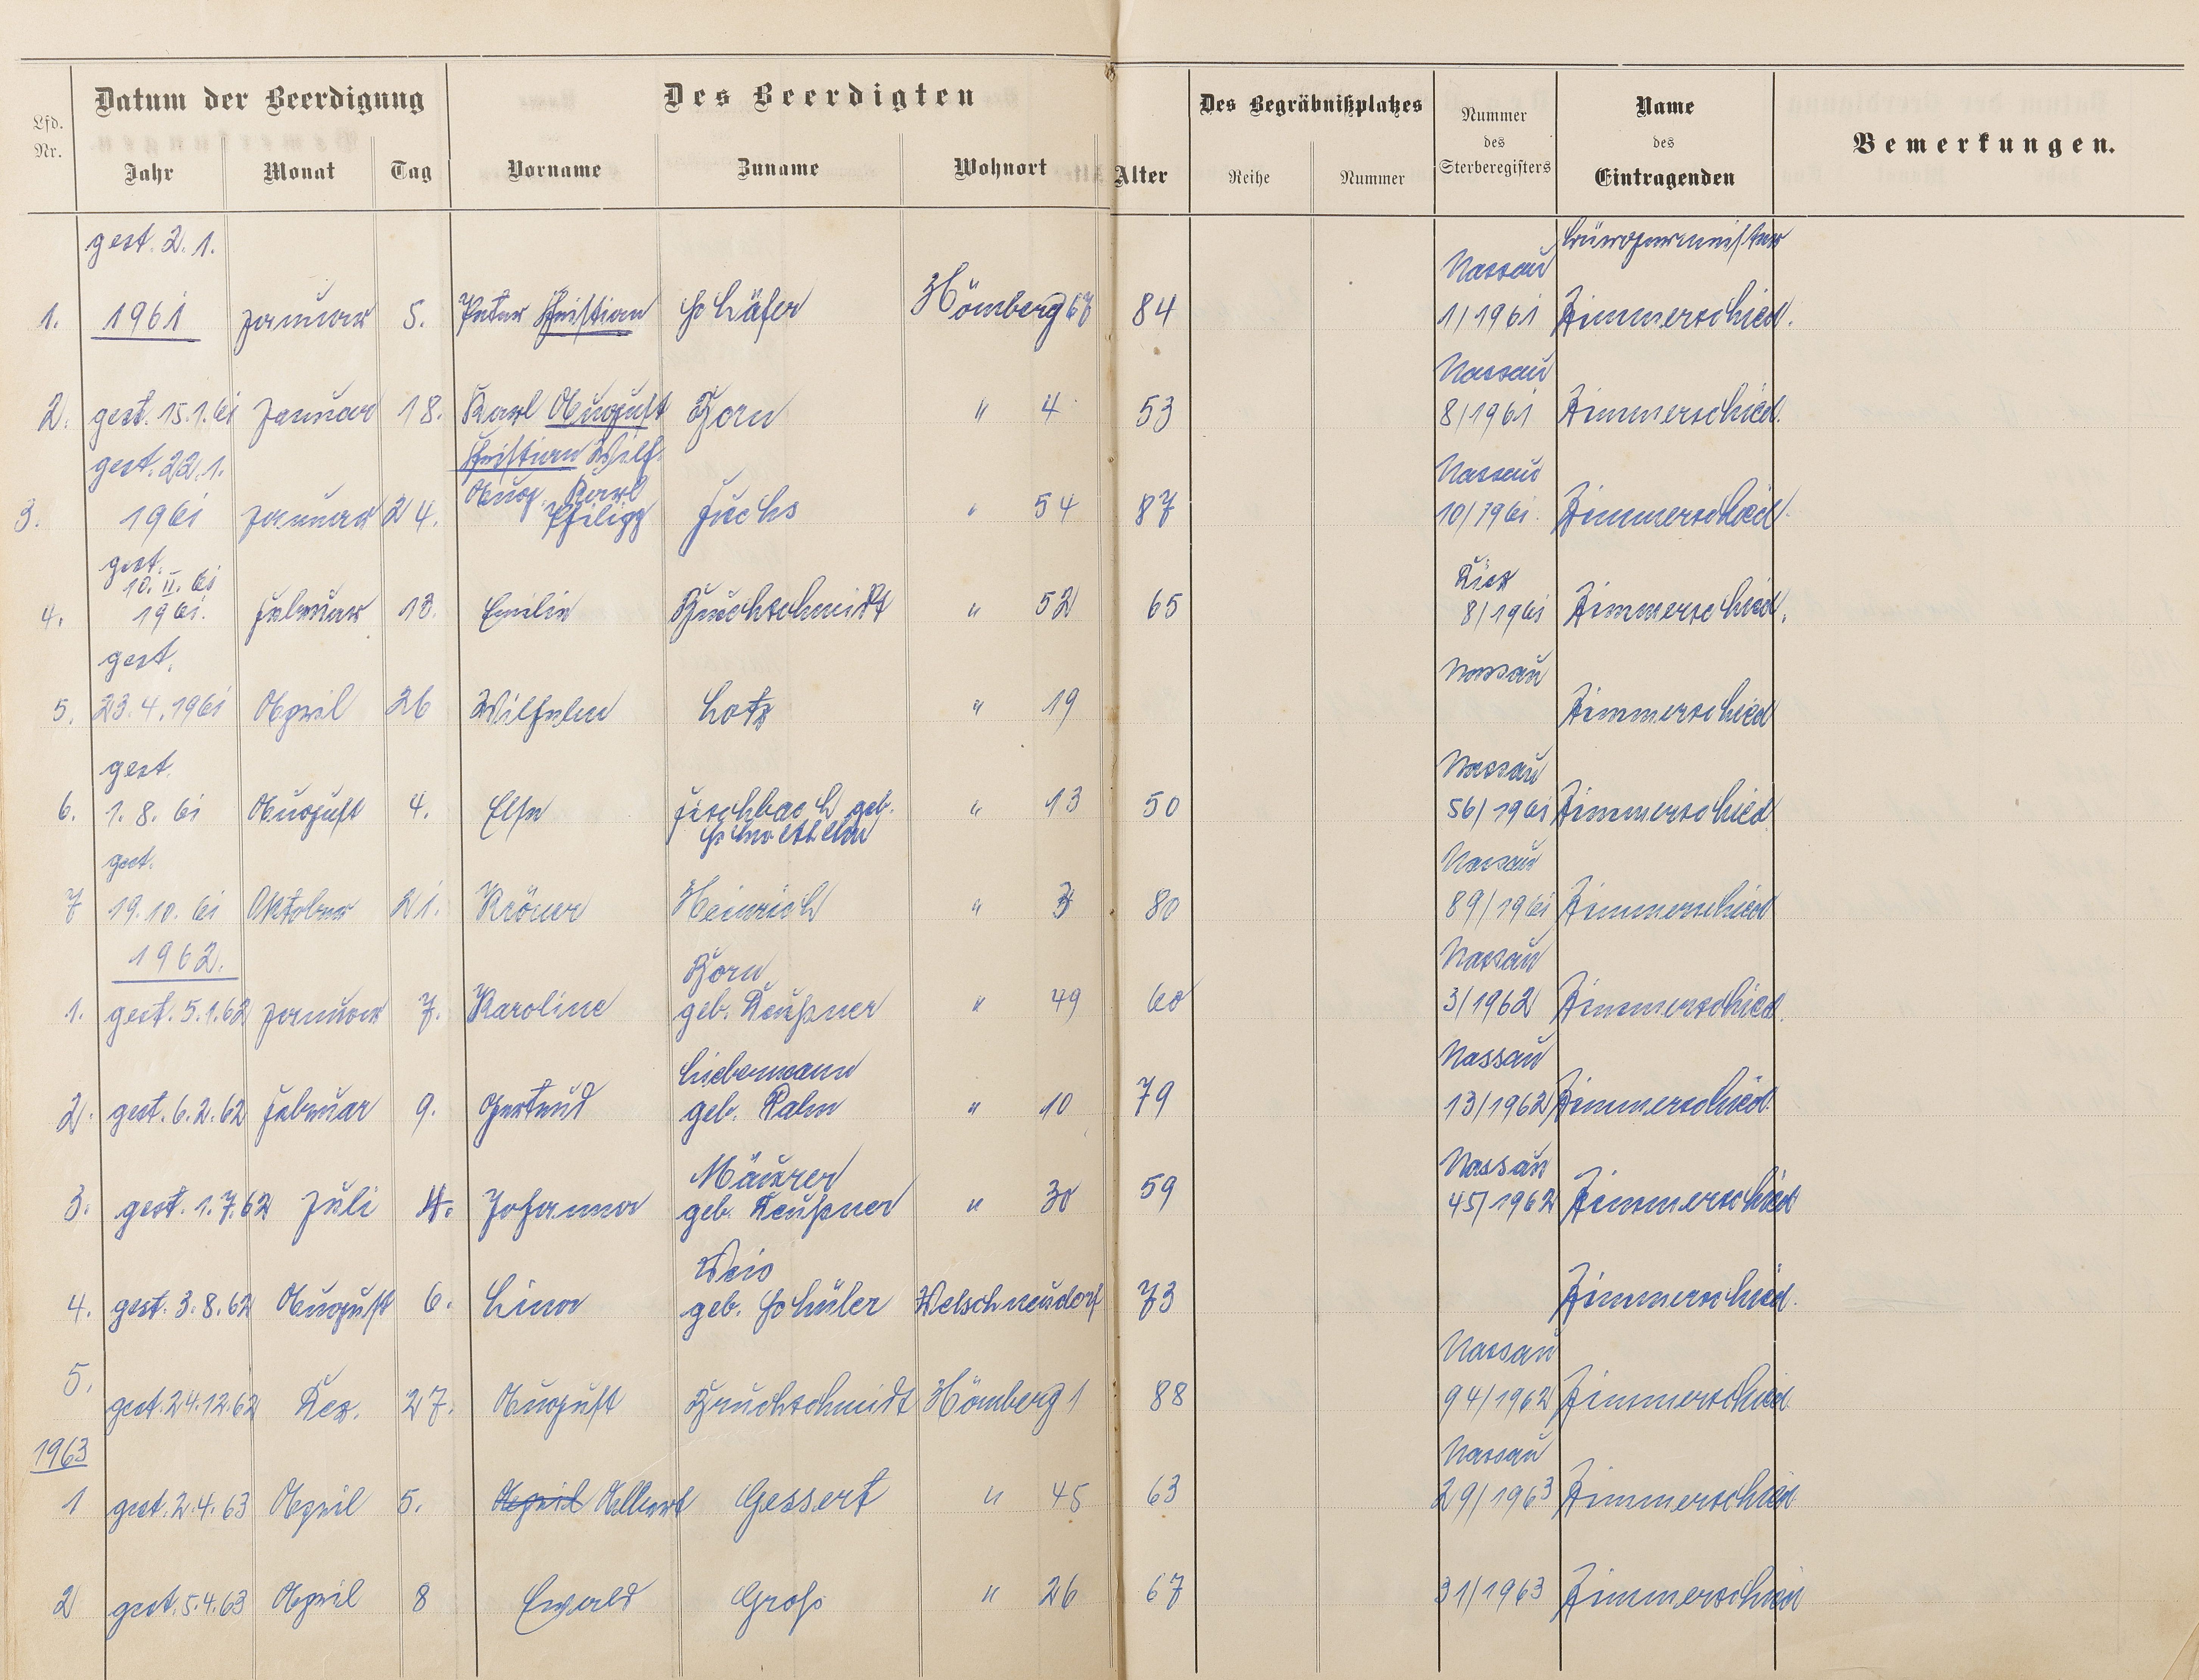 Lfd. Nr. Datum der Beerdigung Des Beerdigten Des Begräbnißplatzes Nummer des Sterberegisters Name des Eintragenden Bemerkungen.
Jahr Monat Tag Vorname Zuname Wohnort Alter Reihe Nummer
gest. 2. 1. Nassau Bürgermeister
1. 1961 Januar 5. Peter Christian Schäfer Hömberg 67 84 1/1961 Zimmerschied.
Nassau
2. gest. 15.1.61 Januar 18. Karl August Zorn " 4 53 8/1961 Zimmerschied.
gest. 22.1. Christian Wilh. Nassau
3. 1961 Januar 24. Aug. Karl Philipp Fuchs " 54 87 10/1961. Zimmerschied.
gest. 10. II. 61 Diez
4. 1961. Februar 13. Emilie Bruchschmidt " 52 65 8/1961 Zimmerschied.
gest. Nassau
5. 23.4.1961 April 26 Wilhelm Lotz " 19 Zimmerschied
gest. Nassau
6. 1. 8. 61 August 4. Else Fischbach geb. " 13 50 56/1961 Zimmerschied
gest. Nassau
7 19.10. 61 Oktober 21. Kröner Heinrich " 3 80 89/1961 Zimmerschied
1962. Zorn Nassau
1. gest. 5.1.62 Januar 7. Karoline geb. Deußner " 49 60 3/1962 Zimmerschied.
Liebermann Nassau
2. gest. 6.2.62 Februar 9. Gertrud geb. Palm " 10 79 13/1962 Zimmerschied.
Mäurer Nassau
3. gest. 1.7.62 Juli 4. Johanna geb. Deußner " 30 59 45/1962 Zimmerschied
Weis
4. gest. 3.8.62 August 6. Lina geb. Schüler Welschneudorf 73 Zimmerschied.
Nassau
5. gest. 24.12.62 Dez. 27. August Bruchschmidt Hömberg 1 88 94/1962 Zimmerschied.
1963 Nassau
1 gest. 2.4.63 April 5. April Albert Gessert " 45 63 29/1963 Zimmerschied
2 gest. 5.4.63 April 8 Ewald Groß " 26 67 31/1963 Zimmerschied